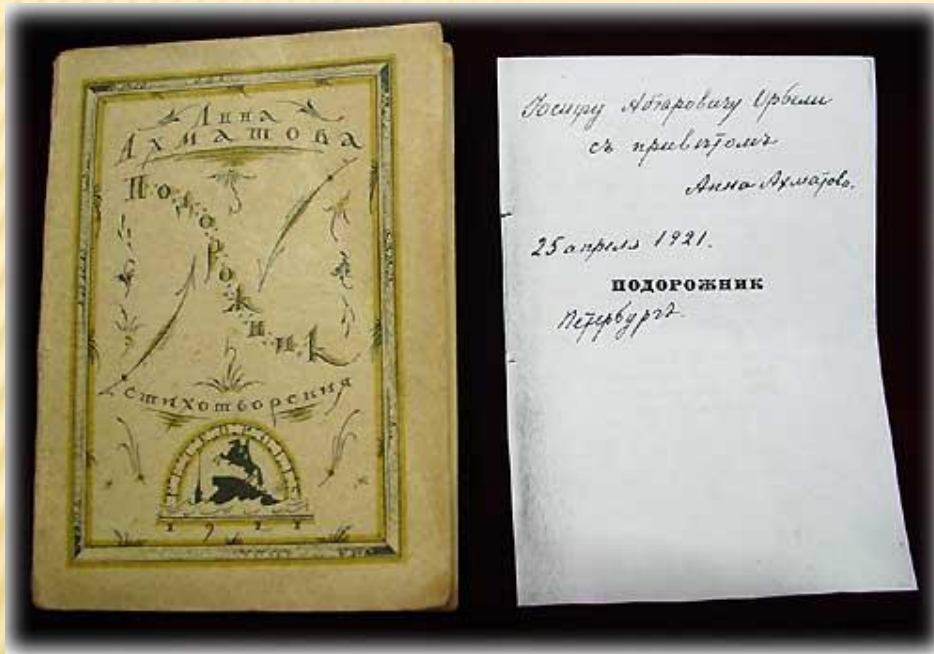 Анна
Ахматова
Подорожник
стихотворения
1921
Іосифу Абгаровичу Орбели
съ привѣтомъ
Анна Ахматова.
25 апреля 1921.
ПОДОРОЖНИК
Петербургъ.